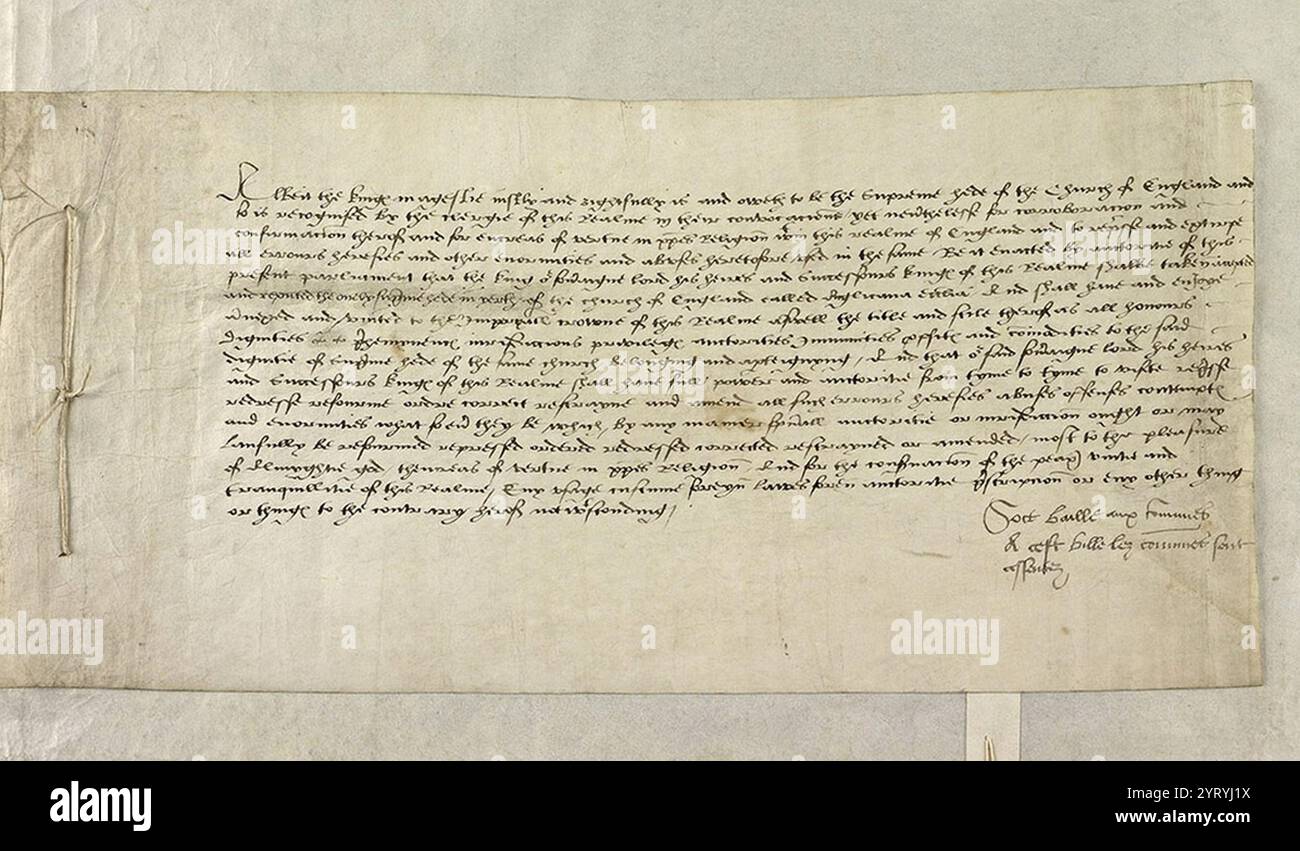 Albeit the kingꝭ mageſtie iuſtly and rightfully is and oweth to be the Supreme hede of the Church of England and
so is recognised by the Clergie of this Realme in their convocacions / yet neuerthelesse for corroboracion and
confirmacion therof and for encreas of vertue in xp̄es Religion wtin this realme of England and to rep̄sse and extirpe
all errours heresies and other enormities and abuses heretofore vsed in the same / Be it enacted by auctoritie of this
present parliament that the king oure sou'aigne lord his heires and Successours kingꝭ of this Realme shalbe taken accepted
and reputed the onely sup̄me hede in yerth of the Church of England called Anglicana Ecclīa / And shall haue and enioye
annexed and vnited to the Imperyall crowne of this Realme aswell the title and stile therof as all honours
Dignities preheminencꝭ iurisdiccions privilegꝭ auctorities Immunities p̱fitꝭ and cōmodities to the said
dignitie of sup̄me hede of the same church belonging and apperteynyng / And that oure said sou'aigne lord his heires
and Successours kingꝭ of this Realme shall haue full power and auctoritie from tyme to tyme to visite rep̄sse
redresse refourme ordre correct restrayne and amend all such errours heresies abuses offenses contemptꝭ
and enormities what so eu' they be which by any maner sp̱uall auctoritie or iurisdiccion ought or may
laufully be refourmed repressed ordered redressed corrected restrayned or amended / most to the pleasure
of Almyghtie god thencreas of vertue in xp̄es Religion / And for the conseruacion of the peax vnitie and
tranquillitie of this Realme / Any vsage custume foreyn lawes foreyn auctoritie p̄scripcion or eny other thing
or thingꝭ to the contrary herof notwtstonding /
Soit baille aux cōmuns
A ceste bille lez cōmuns sont
assentez
alamy
alamy
Image ID: 2YRYJ1X
www.alamy.com